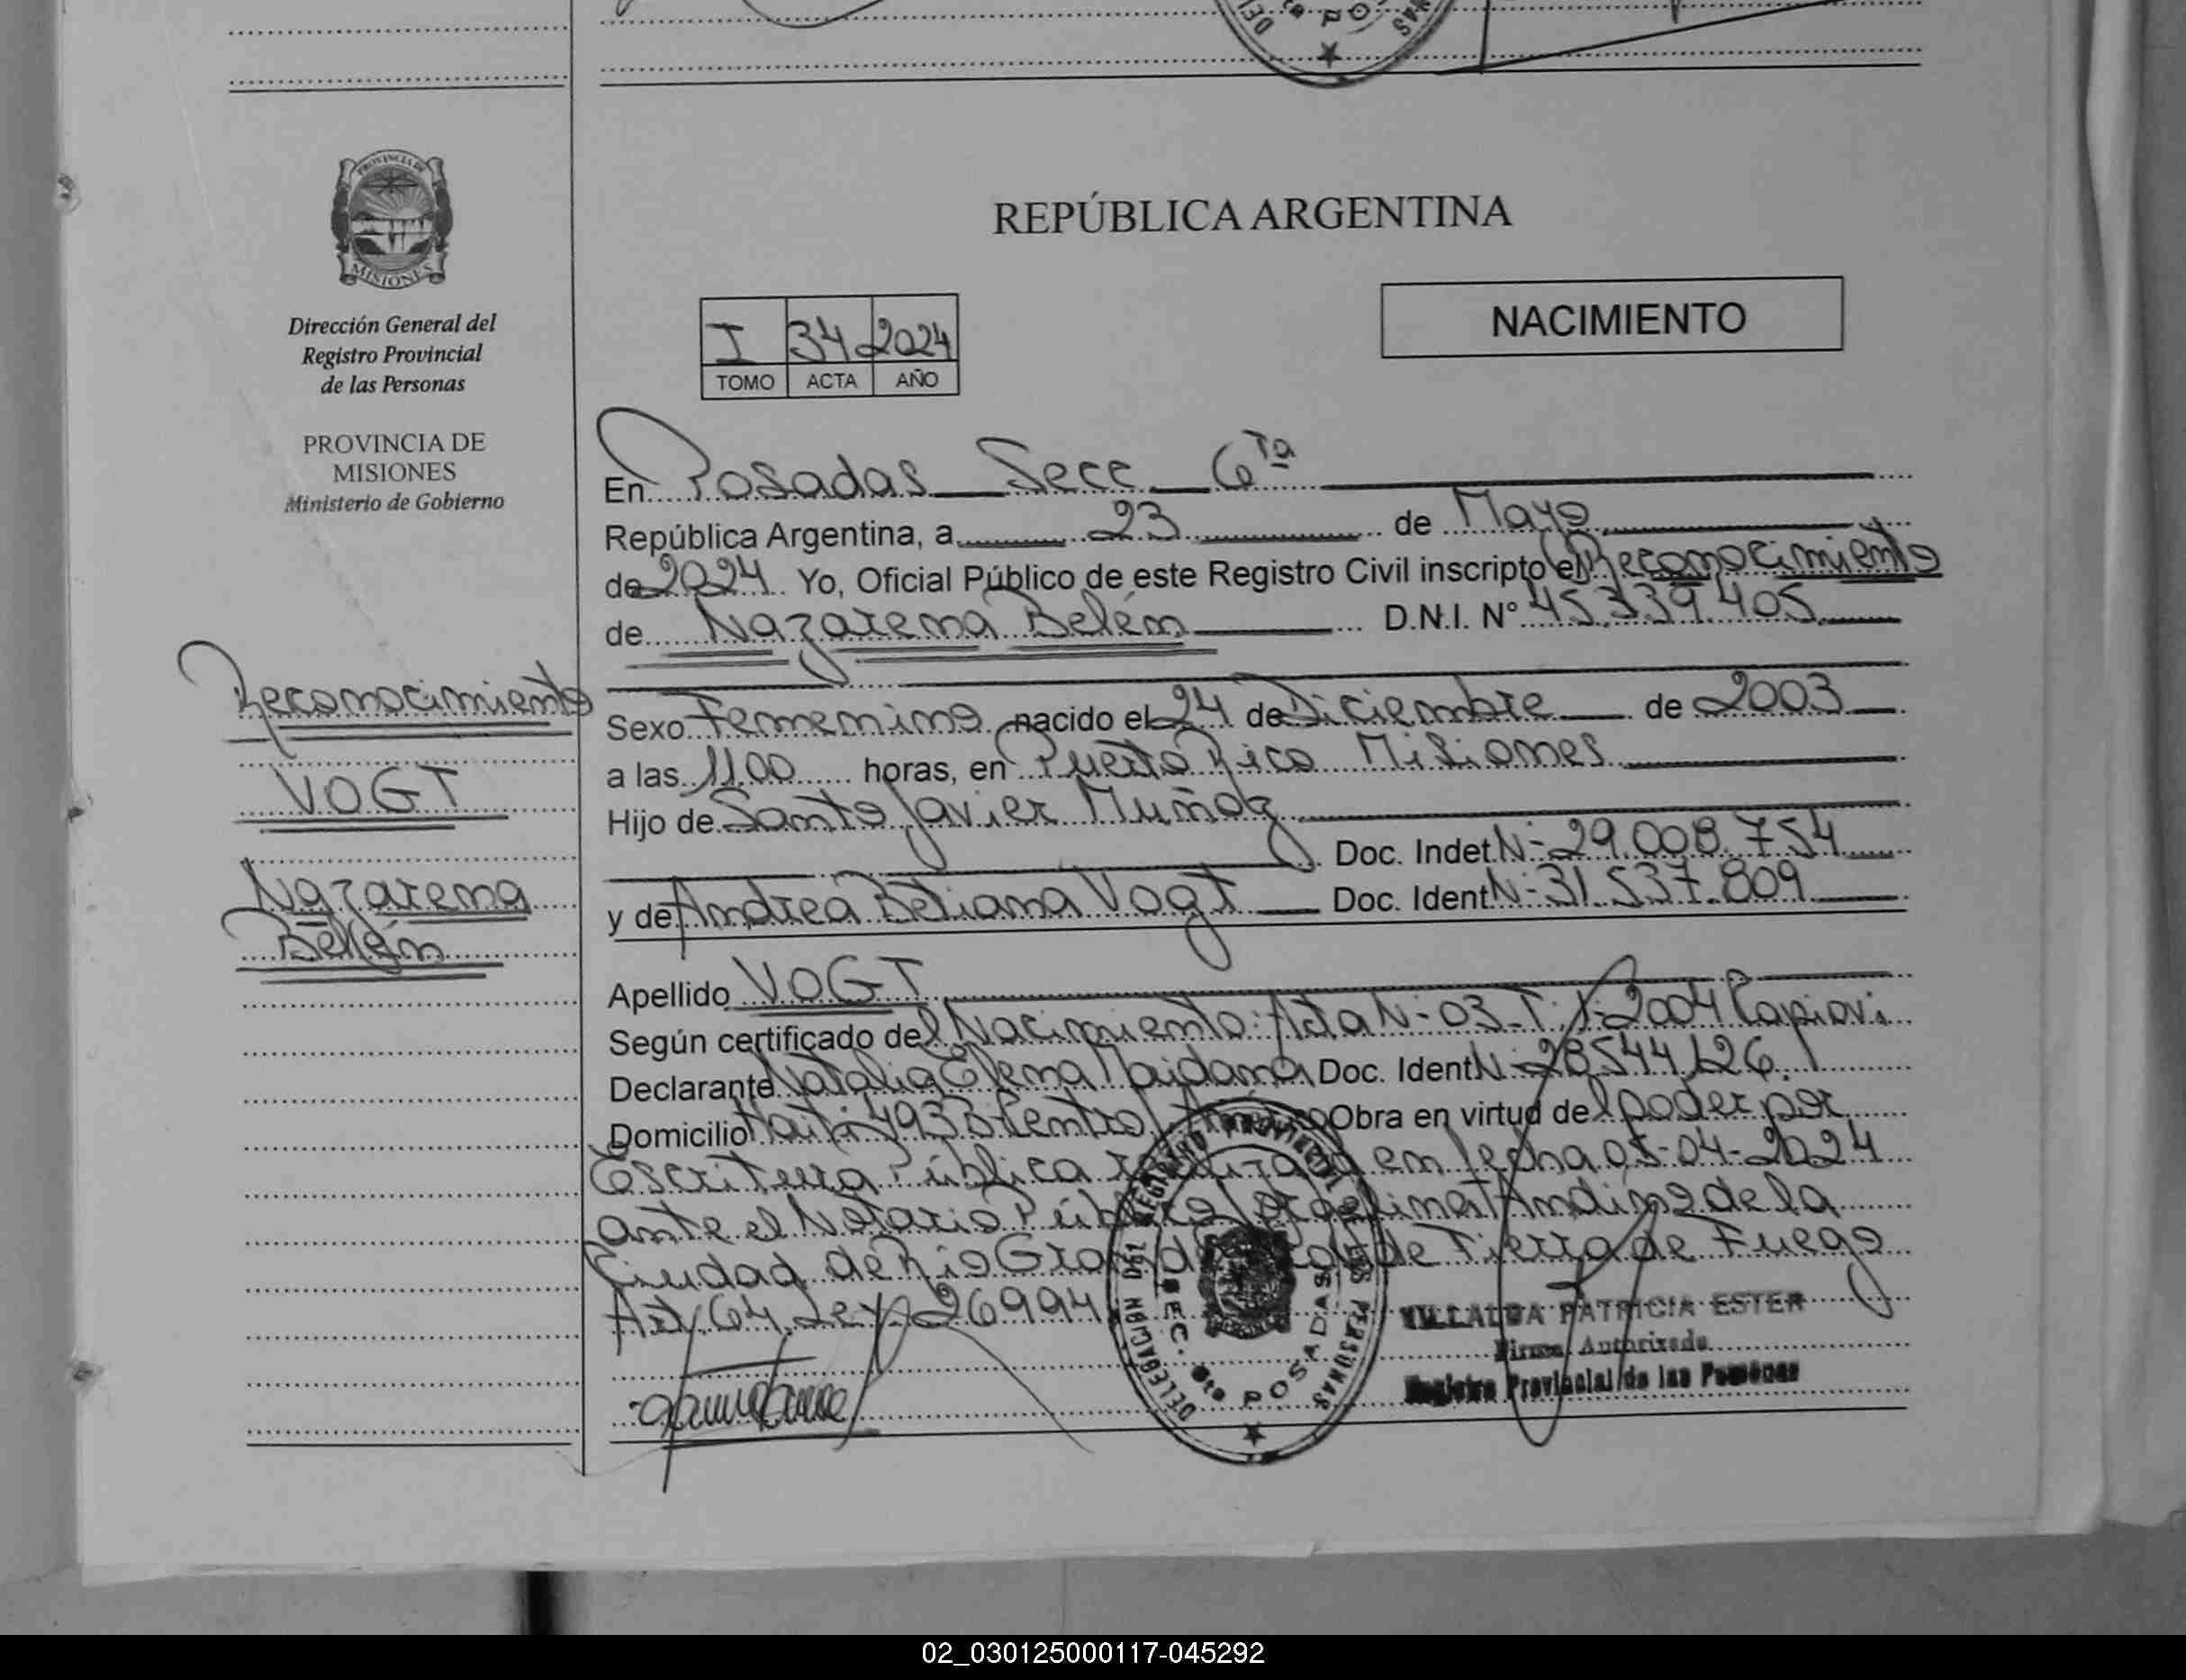 PROVINCIA DE
MISIONES
Dirección General del
Registro Provincial
de las Personas
PROVINCIA DE
MISIONES
Ministerio de Gobierno
Reconocimiento
VOGT
Nazarena
Belén
REPÚBLICA ARGENTINA
NACIMIENTO
I 34 2024
TOMO ACTA AÑO
En Posadas Secc 6ta
República Argentina, a 23 de Mayo
de 2024 Yo, Oficial Público de este Registro Civil inscripto el Reconocimiento
de Nazarena Belém D.N.I. N° 45.339.405
Sexo Femenino nacido el 24 de Diciembre de 2003
a las 11.00 horas, en Puerto Rico Misiones
Hijo de Santo Javier Muñoz
Doc. Indet. N- 29.008.754
y de Andrea Betiana Vogt Doc. Ident N- 31.537.809
Apellido VOGT
Según certificado del Nacimiento: Acta N- 03-T: I-2004 Capiovi
Declarante Natalia Elena Maidana Doc. Ident N- 28544126.
Domicilio Haiti 4933 Centro Obra en virtud del poder por
Escritura Pública realizada en fecha 05-04-2024
ante el Notario Público Andino de la
Ciudad de Rio Grande de Tierra de Fuego
Art 64 Ley 26994
DELEGACION DEL REGISTRO PROVINCIAL DE LAS PERSONAS
SEC. 6ta POSADAS
VILLALBA PATRICIA ESTER
Firma Autorizada
Registro Provincial de las Personas
02_030125000117-045292